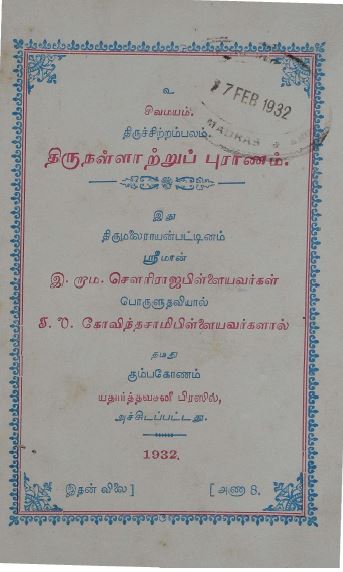 உ
சிவமயம்.
திருச்சிற்றம்பலம்.
திருநள்ளாற்றுப் புராணம்.
17 FEB 1932
MADRAS
இது
திருமலைராயன்பட்டினம்
ஸ்ரீமான்
இ. மும. சௌரிராஜபிள்ளையவர்கள்
பொருளுதவியால்
கோவிந்தசாமிபிள்ளையவர்களால்
தமது
கும்பகோணம்
யதார்த்தவசனீ பிரஸில்,
அச்சிடப்பட்டது.
1932.
இதன் விலை] [அணா 8.